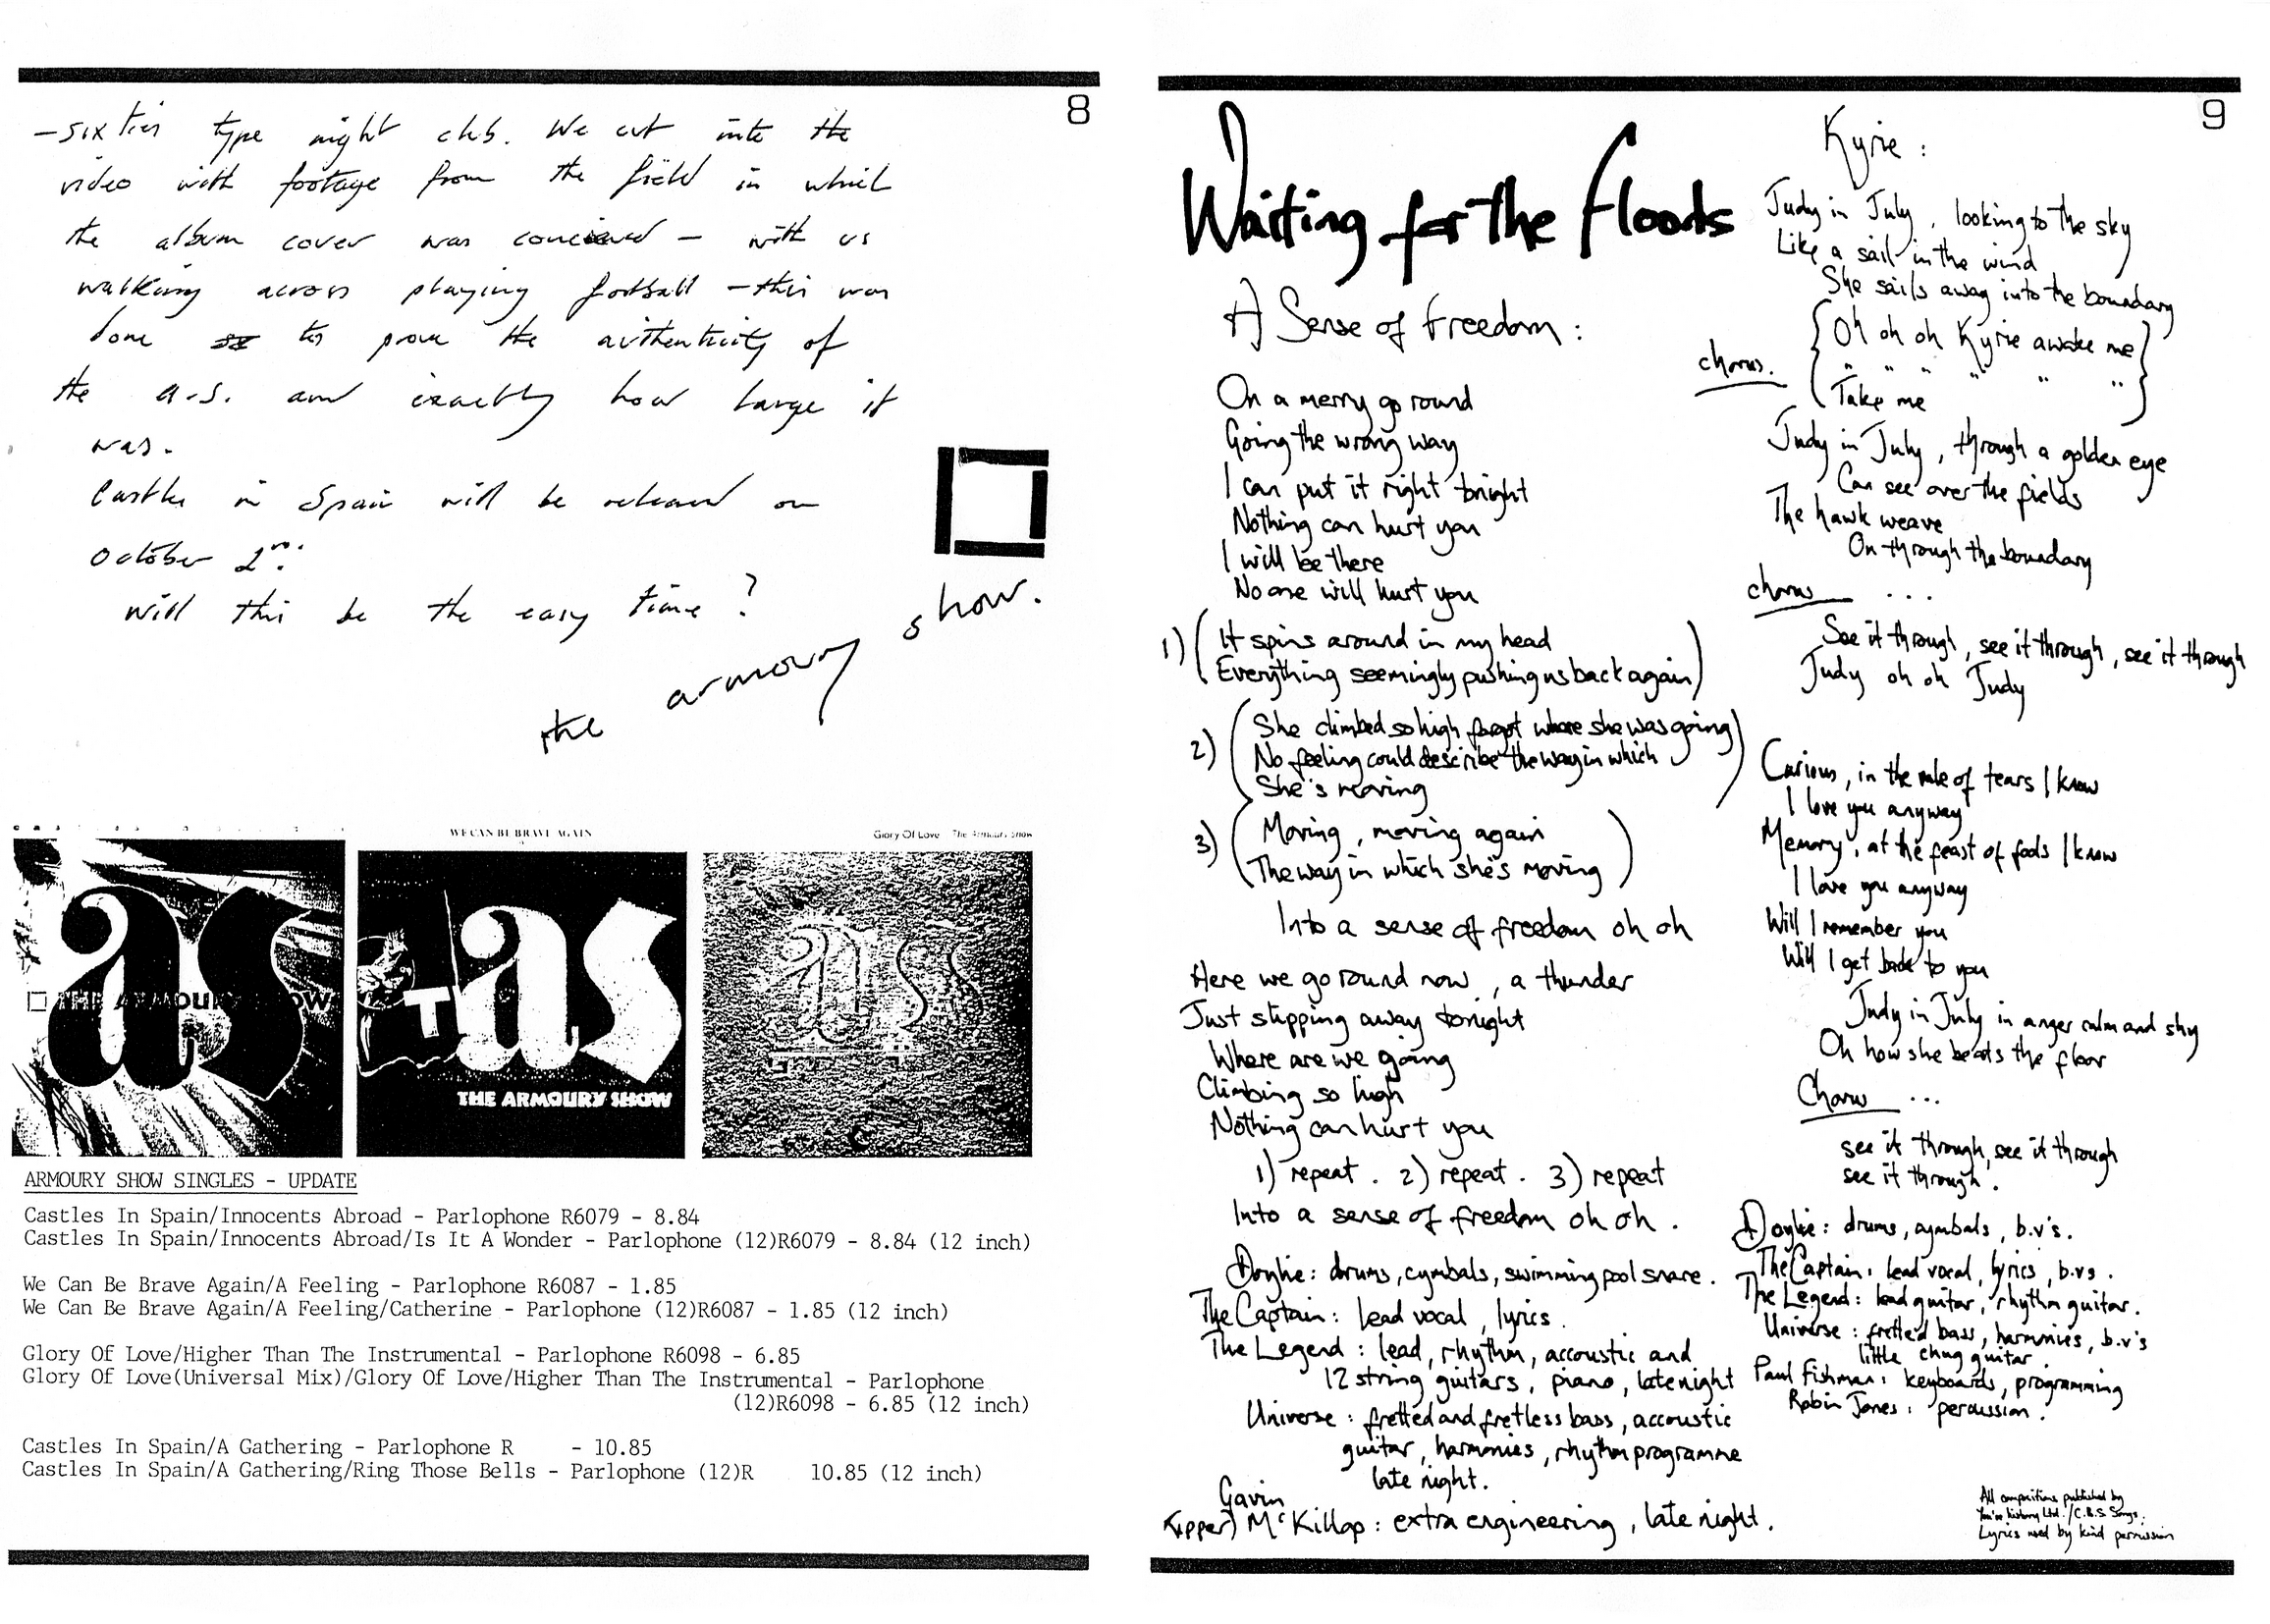 8
-sixties type night club. We cut into the
video with footage from the field in which
the album cover was conceived - with us
walking across playing football - this was
done to prove the authenticity of
the a.s. and exactly how large it
was.
Castles in Spain will be released on
october 2nd.
will this be the easy time?
the armoury show.
WE CAN BE BRAVE AGAIN
Glory Of Love The Armoury Show
as
THE ARMOURY SHOW
T as
THE ARMOURY SHOW
as
ARMOURY SHOW SINGLES - UPDATE
Castles In Spain/Innocents Abroad - Parlophone R6079 - 8.84
Castles In Spain/Innocents Abroad/Is It A Wonder - Parlophone (12)R6079 - 8.84 (12 inch)
We Can Be Brave Again/A Feeling - Parlophone R6087 - 1.85
We Can Be Brave Again/A Feeling/Catherine - Parlophone (12)R6087 - 1.85 (12 inch)
Glory Of Love/Higher Than The Instrumental - Parlophone R6098 - 6.85
Glory Of Love(Universal Mix)/Glory Of Love/Higher Than The Instrumental - Parlophone
(12)R6098 - 6.85 (12 inch)
Castles In Spain/A Gathering - Parlophone R - 10.85
Castles In Spain/A Gathering/Ring Those Bells - Parlophone (12)R 10.85 (12 inch)
9
Waiting for the Floods
A Sense of Freedom:
On a merry go round
Going the wrong way
I can put it right tonight
Nothing can hurt you
I will be there
No one will hurt you
1) (It spins around in my head
Everything seemingly pushing us back again)
2) (She climbed so high forgot where she was going
No feeling could describe the way in which
She's moving)
3) (Moving, moving again
The way in which she's moving)
Into a sense of freedom oh oh
Here we go round now, a thunder
Just slipping away tonight
Where are we going
Climbing so high
Nothing can hurt you
1) repeat. 2) repeat. 3) repeat
Into a sense of freedom oh oh.
Doyhie: drums, cymbals, swimming pool snare.
The Captain: lead vocal, lyrics.
The Legend: lead, rhythm, accoustic and
12 string guitars, piano, late night
Universe: fretted and fretless bass, accoustic
guitar, harmonies, rhythm programme
late night.
Gavin
(Kipper) McKillop: extra engineering, late night.
Kyrie:
Judy in July, looking to the sky
Like a sail in the wind
She sails away into the boundary
chorus. {Oh oh oh Kyrie awake me
" " " " " "
Take me}
Judy in July, through a golden eye
Can see over the fields
The hawk weave
On through the boundary
chorus ...
See it through, see it through, see it through
Judy oh oh Judy
Curious, in the of tears I know
I love you anyway
Memory, at the feast of fools I know
I love you anyway
Will I remember you
Will I get back to you
Judy in July in anger calm and shy
Oh how she beats the floor
Chorus ...
see it through, see it through
see it through.
Doyhie: drums, cymbals, b.v's.
The Captain: lead vocal, lyrics, b.vs.
The Legend: lead guitar, rhythm guitar.
Universe: fretted bass, harmonies, b.v's
little chug guitar.
Paul Fishman: keyboards, programming
Robin Jones: percussion.
All compositions published by
You're history Ltd./C.B.S. Songs.
Lyrics used by kind permission